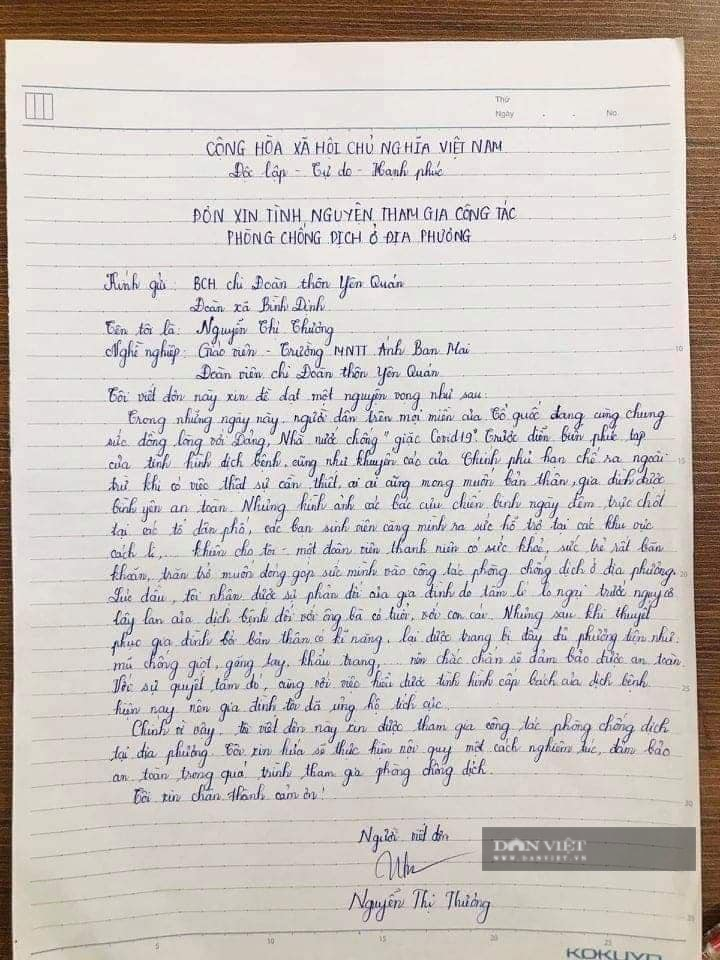 Thứ
Ngày . . No.
CỘNG HÒA XÃ HỘI CHỦ NGHĨA VIỆT NAM
Độc lập - Tự do - Hạnh phúc
ĐƠN XIN TÌNH NGUYỆN THAM GIA CÔNG TÁC
PHÒNG CHỐNG DỊCH Ở ĐỊA PHƯƠNG
5
Kính gửi: BCH chi Đoàn thôn Yên Quán
Đoàn xã Bình Định
Tên tôi là: Nguyễn Thị Thương
Nghề nghiệp: Giáo viên - Trường MNTT Ánh Ban Mai
10
Đoàn viên chi Đoàn thôn Yên Quán.
Tôi viết đơn này xin đề đạt một nguyện vọng như sau:
Trong những ngày này, người dân trên mọi miền của Tổ quốc đang cùng chung
sức đồng lòng với Đảng, Nhà nước chống "giặc Covid 19". Trước diễn biến phức tạp
của tình hình dịch bệnh, cũng như khuyến cáo của Chính phủ hạn chế ra ngoài
15
trừ khi có việc thật sự cần thiết, ai ai cũng mong muốn bản thân, gia đình được
bình yên an toàn. Nhưng hình ảnh các bác cựu chiến binh ngày đêm trực chốt
tại các tổ dân phố, các bạn sinh viên căng mình ra sức hỗ trợ tại các khu vực
cách li,... khiến cho tôi - một đoàn viên thanh niên có sức khoẻ, sức trẻ rất băn
khoăn, trăn trở muốn đóng góp sức mình vào công tác phòng chống dịch ở địa phương.
20
Lúc đầu, tôi nhận được sự phản đối của gia đình do tâm lí lo nghĩ trước nguy cơ
lây lan của dịch bệnh đối với ông bà có tuổi, với con cái. Nhưng sau khi thuyết
phục gia đình bởi bản thân có kĩ năng, lại được trang bị đầy đủ phương tiện như
mũ chống giọt, găng tay, khẩu trang,... nên chắc chắn sẽ đảm bảo được an toàn.
Với sự quyết tâm đó, cùng với việc hiểu được tình hình cấp bách của dịch bệnh
25
hiện nay nên gia đình tôi đã ủng hộ tích cực.
Chính vì vậy, tôi viết đơn này xin được tham gia công tác phòng chống dịch
tại địa phương. Tôi xin hứa sẽ thực hiện nội quy một cách nghiêm túc, đảm bảo
an toàn trong quá trình tham gia phòng chống dịch.
Tôi xin chân thành cảm ơn!
30
Người viết đơn
DÂN VIỆT
WWW.DANVIET.VN
Nguyễn Thị Thương
35
5 10 15 20 25
KOKUYO